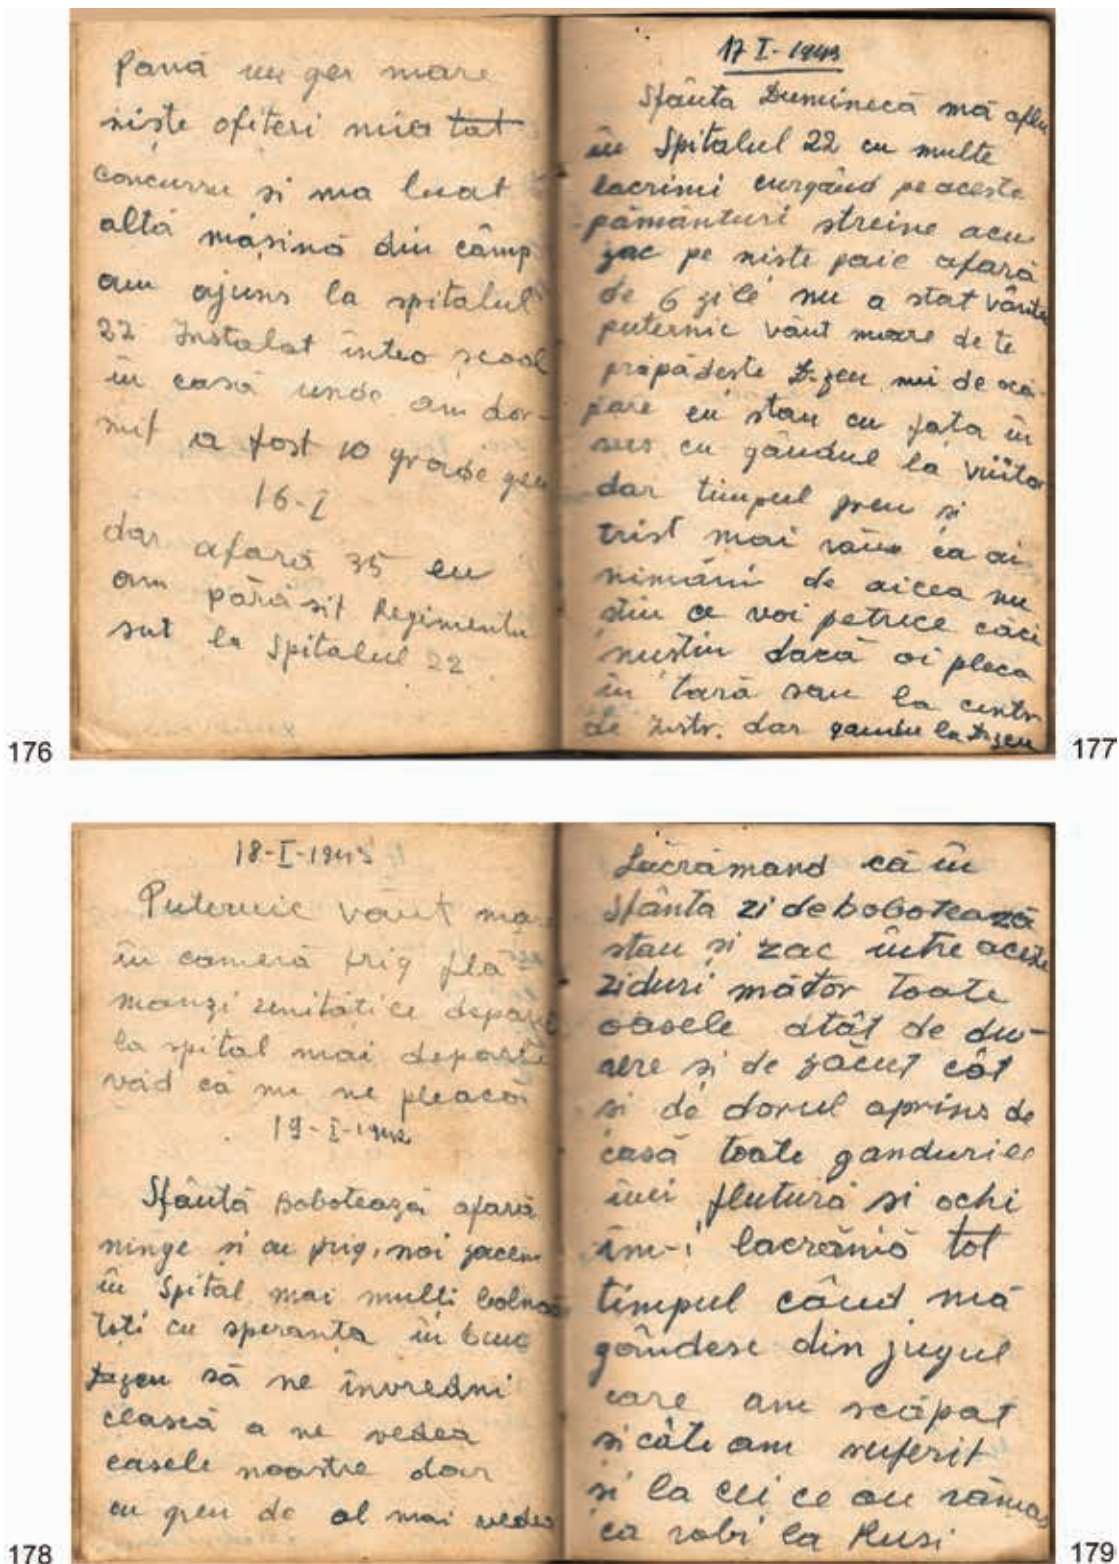 pană un ger mare
niște ofiteri mia tat
concursu si ma luat
altă mășină din câmp
am ajuns la spitalul
22 Instalat intro scoal
in casă unde am dor-
mit a fost 10 grade ger
16-I
dar afară 35 eu
am părăsit Regimentu
sut la Spitalul 22
176
17 I-1943
Sfânta Duminecă mă aflu
în Spitalul 22 cu multe
lacrimi curgând pe aceste
pământuri streine acu
zac pe niste paie afară
de 6 zile nu a stat vântu
puternic vânt mare de te
prăpădește D-zeu mi de scă
pare eu stau cu fata în
sus cu gândul la viitor
dar timpul greu si
trist mai rău ca ai
nimănui de aicea nu
stiu ce voi petrece căci
nustiu dacă oi pleca
în tară sau la centr
de instr. dar gandu la D-zeu
177
18-I-1943
Puternic vânt mare
în cameră frig flă
manzi unitătile departe
la spital mai departe
văd că nu ne pleacă
19-I-1942
Sfântă Bobotează afară
ninge si au frig, noi zacem
în Spital mai multi bolnavi
toti cu speranta în bunu
D-zeu să ne învredni
cească a ne vedea
casele noastre doar
cu greu de al mai vedea
178
Lăcrămand că în
Sfânta zi de bobotează
stau si zac între aceste
ziduri mădor toate
oasele atât de du-
rere si de zăcut cât
si de dorul aprins de
casă toate gandurile
imi flutură si ochi
îm-i lacrămă tot
timpul când mă
gândesc din jugul
care am scăpat
si câte am suferit
si la cei ce au rămas
ca robi la Rusi
179